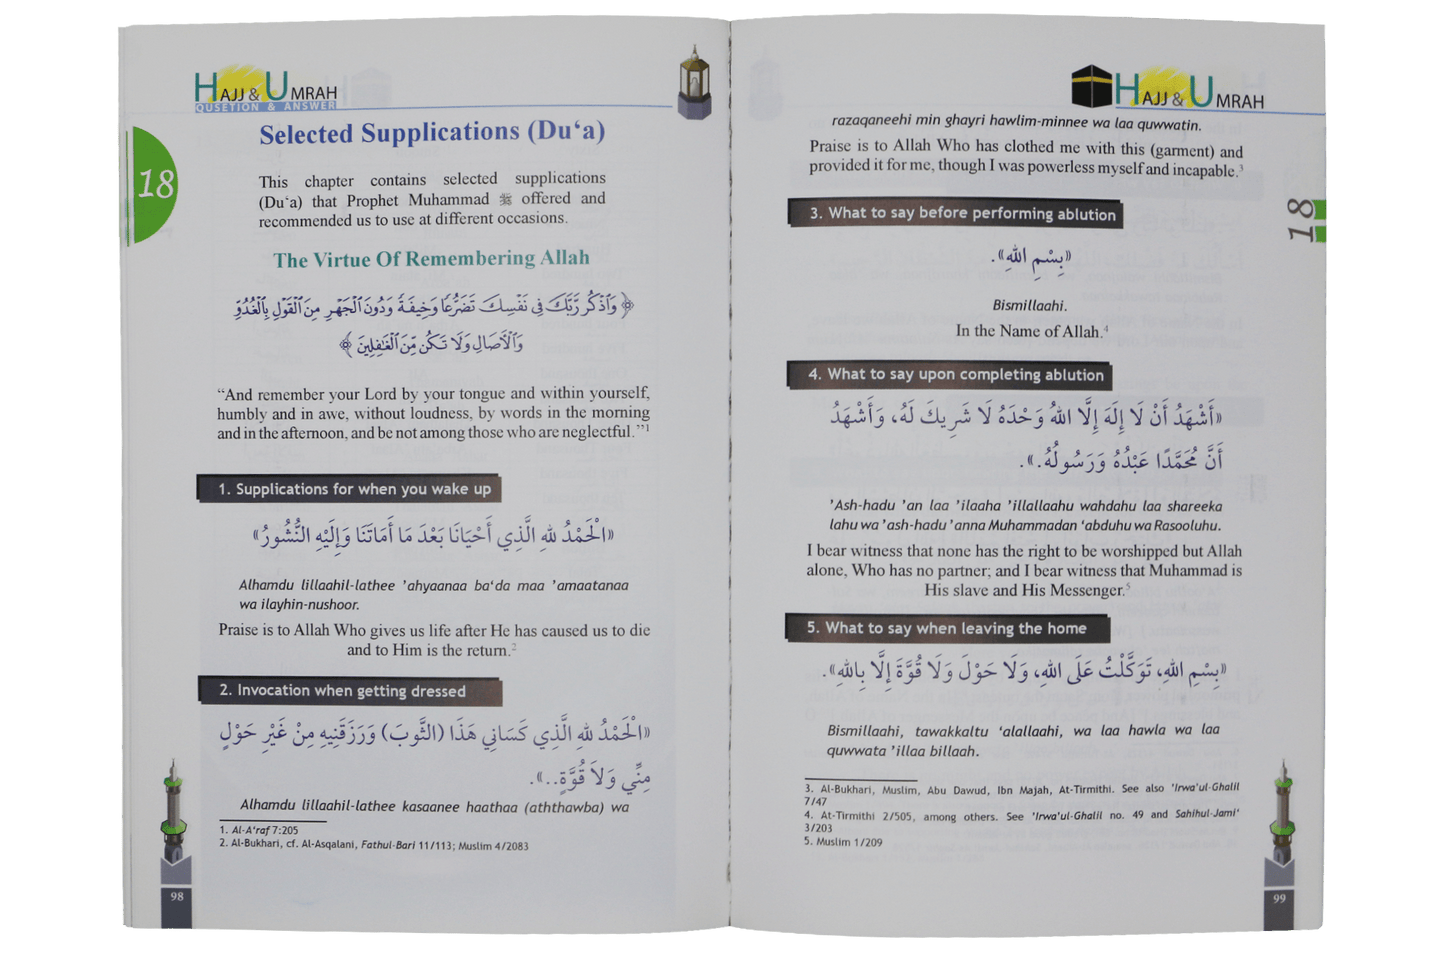 HAJJ & UMRAH
QUSETION & ANSWER
18
Selected Supplications (Du‘a)
This chapter contains selected supplications
(Du‘a) that Prophet Muhammad ﷺ offered and
recommended us to use at different occasions.
The Virtue Of Remembering Allah
﴿ وَٱذْكُر رَّبَّكَ فِى نَفْسِكَ تَضَرُّعًا وَخِيفَةً وَدُونَ ٱلْجَهْرِ مِنَ ٱلْقَوْلِ بِٱلْغُدُوِّ
وَٱلْأَصَالِ وَلَا تَكُن مِّنَ ٱلْغَٰفِلِينَ ﴾
“And remember your Lord by your tongue and within yourself,
humbly and in awe, without loudness, by words in the morning
and in the afternoon, and be not among those who are neglectful.”1
1. Supplications for when you wake up
«الْحَمْدُ لِلهِ الَّذِي أَحْيَانَا بَعْدَ مَا أَمَاتَنَا وَإِلَيْهِ النُّشُورُ»
Alhamdu lillaahil-lathee ’ahyaanaa ba‘da maa ’amaatanaa
wa ilayhin-nushoor.
Praise is to Allah Who gives us life after He has caused us to die
and to Him is the return.2
2. Invocation when getting dressed
«الْحَمْدُ لِلهِ الَّذِي كَسَانِي هَذَا (الثَّوبَ) وَرَزَقَنِيهِ مِنْ غَيْرِ حَوْلٍ
مِنِّي وَلاَ قُوَّةٍ..».
Alhamdu lillaahil-lathee kasaanee haathaa (aththawba) wa
1. Al-A‘raf 7:205
2. Al-Bukhari, cf. Al-Asqalani, Fathul-Bari 11/113; Muslim 4/2083
98
HAJJ & UMRAH
razaqaneehi min ghayri hawlim-minnee wa laa quwwatin.
Praise is to Allah Who has clothed me with this (garment) and
provided it for me, though I was powerless myself and incapable.3
18
3. What to say before performing ablution
«بِسْمِ اللهِ».
Bismillaahi.
In the Name of Allah.4
4. What to say upon completing ablution
«أَشْهَدُ أَنْ لَا إِلَهَ إِلَّا اللهُ وَحْدَهُ لَا شَرِيكَ لَهُ، وَأَشْهَدُ
أَنَّ مُحَمَّدًا عَبْدُهُ وَرَسُولُهُ.».
’Ash-hadu ’an laa ’ilaaha ’illallaahu wahdahu laa shareeka
lahu wa ’ash-hadu ’anna Muhammadan ‘abduhu wa Rasooluhu.
I bear witness that none has the right to be worshipped but Allah
alone, Who has no partner; and I bear witness that Muhammad is
His slave and His Messenger.5
5. What to say when leaving the home
«بِسْمِ اللهِ، تَوَكَّلْتُ عَلَى اللهِ، وَلَا حَوْلَ وَلَا قُوَّةَ إِلَّا بِاللهِ».
Bismillaahi, tawakkaltu ‘alallaahi, wa laa hawla wa laa
quwwata ’illaa billaah.
3. Al-Bukhari, Muslim, Abu Dawud, Ibn Majah, At-Tirmithi. See also ’Irwa’ul-Ghalil
7/47
4. At-Tirmithi 2/505, among others. See ’Irwa’ul-Ghalil no. 49 and Sahihul-Jami‘
3/203
5. Muslim 1/209
99